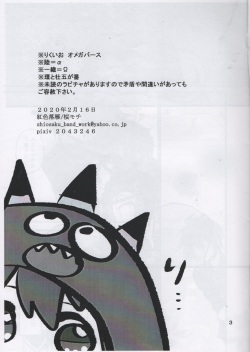 ※りくいお オメガバース
※陸＝α
※一織＝Ω
※環と壮五が番
※未読のラビチャがありますので矛盾や間違いがあっても
ご容赦下さい。
2020年2月16日
紅色落雁/桜モチ
shiosaku_band_work@yahoo.co.jp
pixiv 2043246
り…
3